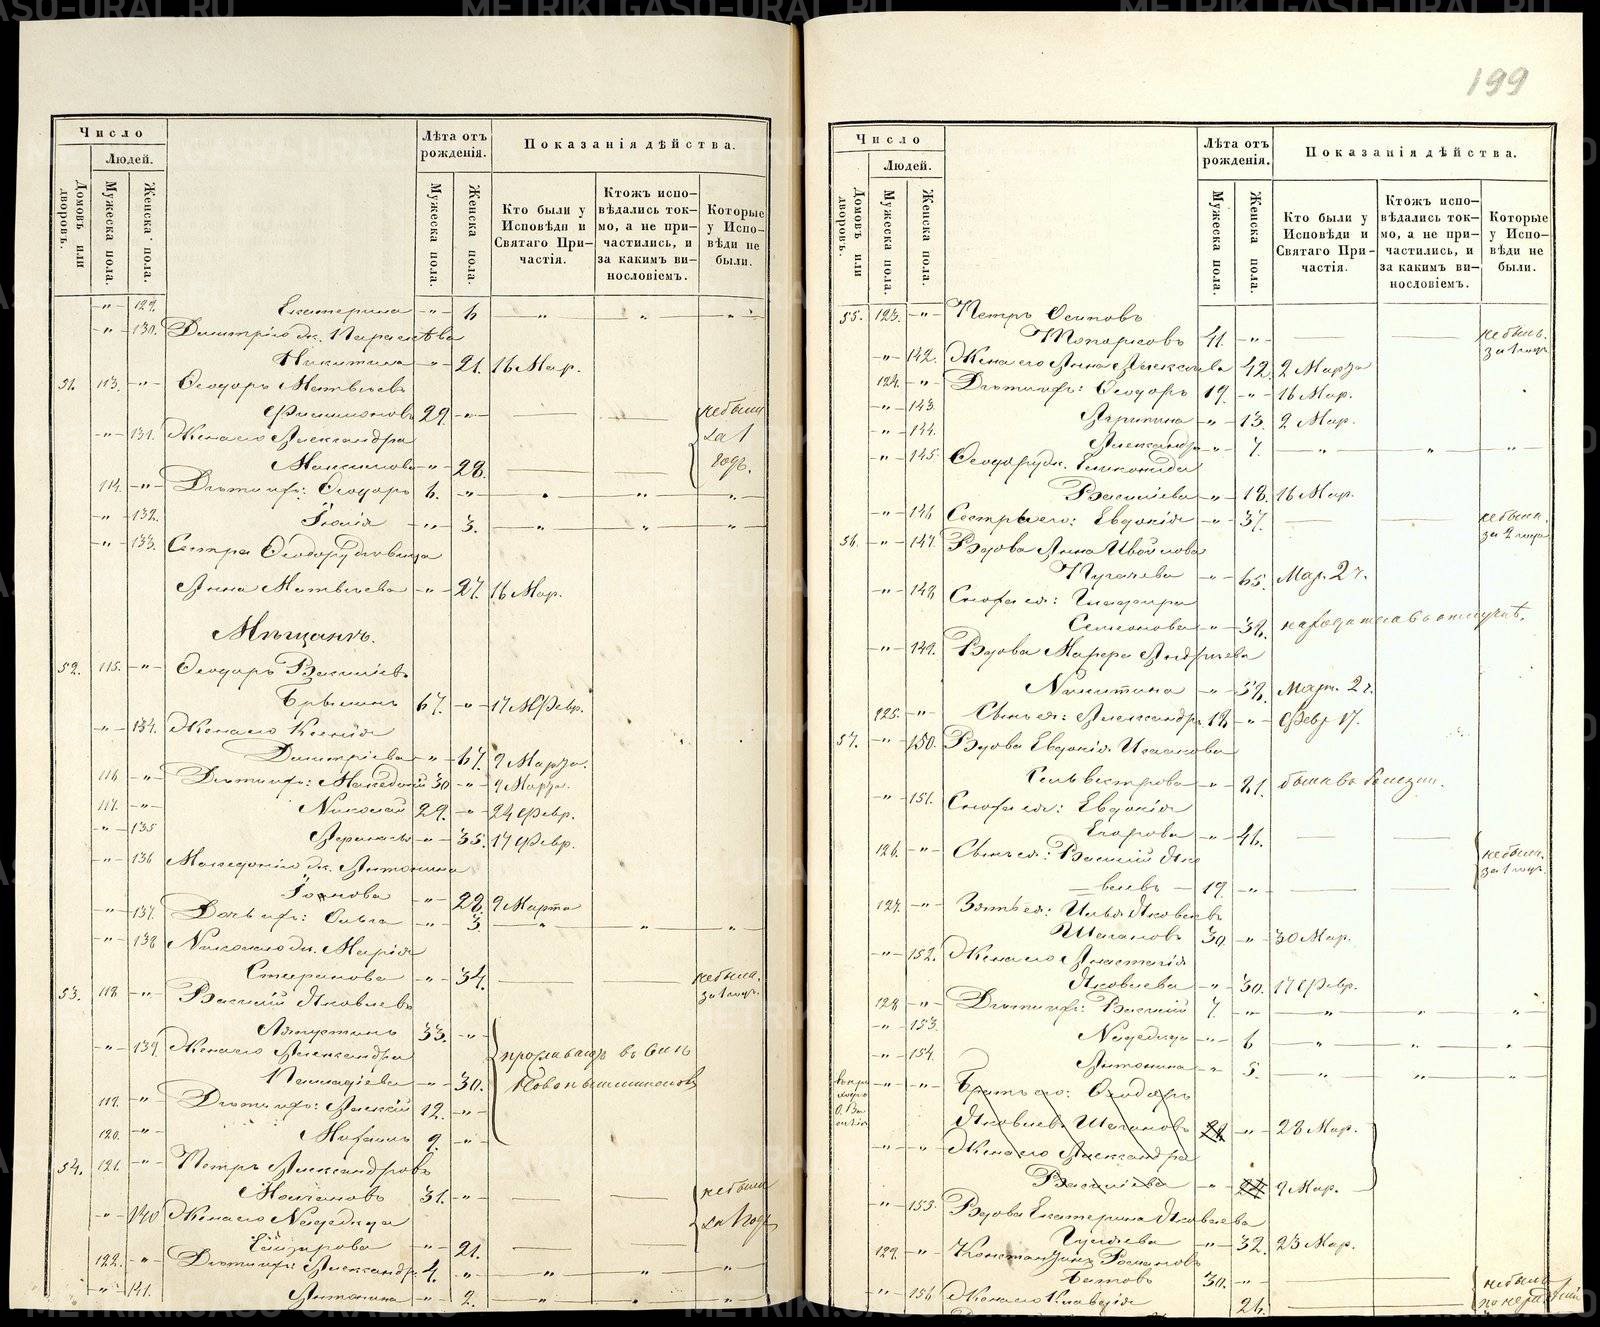 199
Число
Людей.
Домовъ или дворовъ.
Мужеска пола.
Женска пола.
Лѣта отъ рожденія.
Мужеска пола.
Женска пола.
Показанія дѣйства.
Кто были у Исповѣди и Святаго При-
частія.
Ктожъ испо-
вѣдались ток-
мо, а не при-
частились, и
за какимъ ви-
нословіемъ.
Которые
у Испо-
вѣди не
были.
129. Екатерина 6
130. Димитрію ж. Параскева
Никитина 21. 16 Мар.
51. 113. Ѳеодоръ Матвѣевъ
Филимоновъ 29. не были
131. Жена его Александра за 1
Максимова 28. годъ.
114. Дѣти ихъ: Ѳеодоръ 6.
132. Юлія 3.
133. Сестра Ѳеодору дѣвица
Анна Матвѣева 27. 16 Мар.
Мѣщанъ.
52. 115. Ѳеодоръ Васильевъ
67. 17 Февр.
134. Жена его Ксенія
Димитріева 67. 9 Марта.
116. Дѣти ихъ: Македоній 30 9 Марта.
117. Николай 29. 24 Февр.
135 35. 17 Февр.
136 Македонію ж. Антонина
Іоанова 28. 9 Марта
137. Дочь ихъ: Ольга 3
138 Николаю ж. Марія
Стефанова 34. не была.
за 1 годъ.
53. 118. Василій Яковлевъ
33.
139. Жена его Александра
Палладіева 30.
119. Дѣти ихъ: Алексій 12.
120. 9.
54. 121. Петръ Александровъ
Молчановъ 31. не были
140 Жена его Надежда за 1 годъ
21.
122. Дѣти ихъ: Александръ 4.
141. Антонина 2.
Число
Людей.
Домовъ или дворовъ.
Мужеска пола.
Женска пола.
Лѣта отъ рожденія.
Мужеска пола.
Женска пола.
Показанія дѣйства.
Кто были у
Исповѣди и
Святаго При-
частія.
Ктожъ испо-
вѣдались ток-
мо, а не при-
частились, и
за какимъ ви-
нословіемъ.
Которые
у Испо-
вѣди не
были.
55. 123. Петръ Осиповъ
Топорковъ 41. не былъ.
за 1 годъ
142. Жена его Анна Алексѣева 42. 2 Марта
124. Дѣти ихъ: Ѳеодоръ 19. 16 Мар.
143. 13. 2 Мар.
144. Александра 7.
145. Ѳеодору ж. Еликонида
Васильева 18. 16 Мар.
146 Сестра его: Евдокія 37. не была.
за 2 года
56. 147. Вдова Анна
Пугачева 65. Мар. 2 ч.
148. Сноха ея: Глафира
Семенова 38. находилась въ отлучкѣ.
149. Вдова Марѳа Андреева
Никитина 58. Март. 2 ч.
125. Сынъ ея: Александръ 18. Февр 17.
57. 150. Вдова Евдокія
Сильвестрова 81. была въ болезни.
151. Сноха ея: Евдокія
Егорова 46.
126. Сынъ ея: Василій Яко не были.
влевъ 19. за 1 годъ.
127. Зять ея: Илья Яковлевъ
Шагановъ 30. 30 Мар.
152. Жена его Анастасія
Яковлева 30. 17 Февр.
128 Дѣти ихъ: Василій 7.
153. Надежда 6
154. Антонина 5.
Братъ его: Ѳеодоръ
Яковлевъ Шагановъ 28 Мар.
Жена его Александра
Васильева 9 Мар.
155. Вдова Екатерина Яковлева
32. 23 Мар.
129. Константинъ Романовъ
30. не были
156 Жена его Клавдія 26.